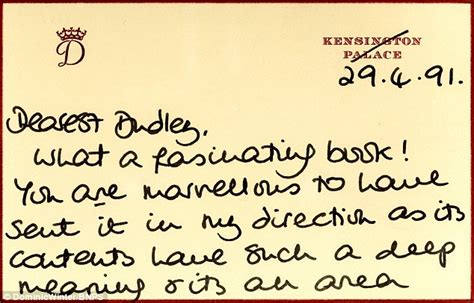 D
KENSINGTON
PALACE
29.4.91.
Dearest Dudley,
What a fascinating book!
You are marvellous to have
sent it in my direction as its
contents have such a deep
meaning & its an area
© DominicWinter/BNPS